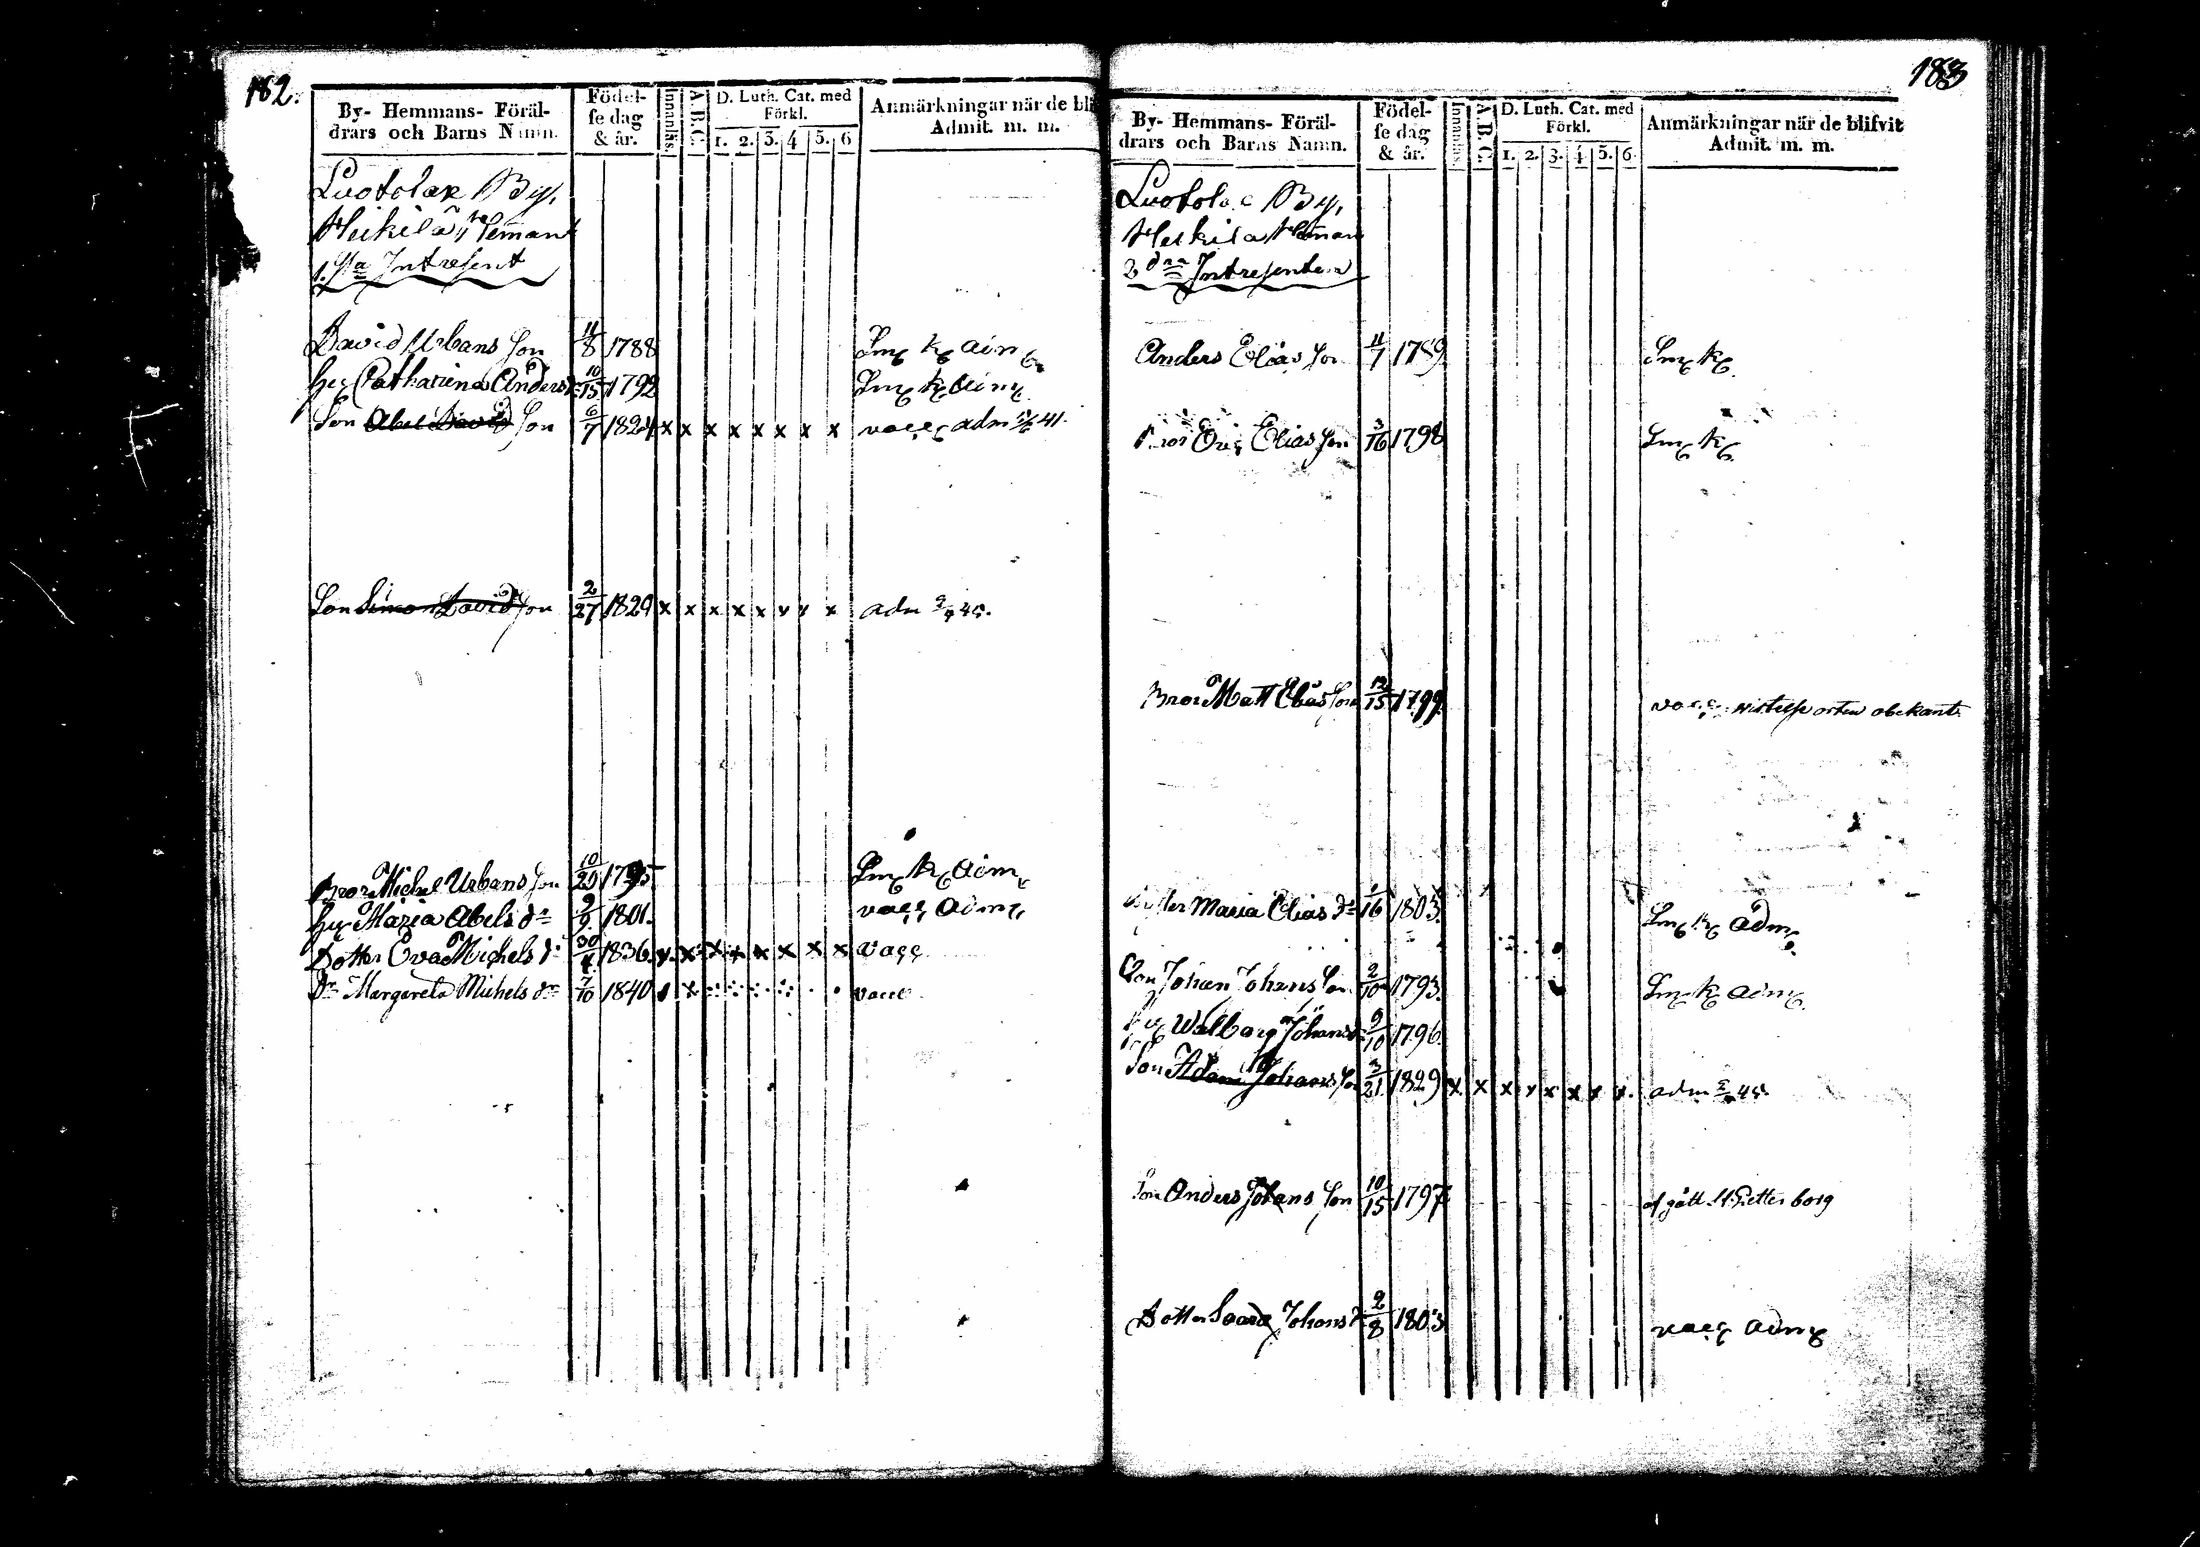 182.
By- Hemmans- Föräl-
drars och Barns Namn.
Födel-
se dag
& år.
Innanläs.
A.B.C.
D. Luth. Cat. med
Förkl.
1. 2. 3. 4 5. 6
Anmärkningar när de bli
Admit. m. m.
Luotolax By,
Heikilä Hemman
1.sta Intresent
David Urbans Son 11/8 1788
Catharina Anders 10/15 1792
Son Abel David Son 6/7 1824 x x x x x x x x adm 41.
Son Simon David Son 2/27 1829 x x x x x x x x adm 45.
Bror Michel Urbans Son 10/29 1795
Maria Abels dr 9/9 1801.
Dotter Eva Michels dr 30/4 1836. x x x x x x x x vacc
Dr Margareta Michels dr 7/10 1840 vacc
183
By- Hemmans- Föräl-
drars och Barns Namn.
Födel-
se dag
& år.
Innanläs.
A.B.C.
D. Luth. Cat. med
Förkl.
1. 2. 3. 4 5. 6.
Anmärkningar när de blifvit
Admit. m. m.
By,
Heikilä Hemman
2dra Intresenten
Anders Elias Son 11/7 1789
Bror Elias Son 3/16 1798
Bror Matt Elias Son 12/15 1799. vistelse orten obekant.
Syster Maria Elias dr 1/16 1803.
Johan Johans Son 2/10 1793.
Walborg Johans 9/10 1796.
Son Adam Johans Son 3/21 1829 x x x x x x x x. adm 45.
Son Anders Johans Son 10/15 1797 afgått St Petters borg
Dotter Saara Johans dr 2/8 1803